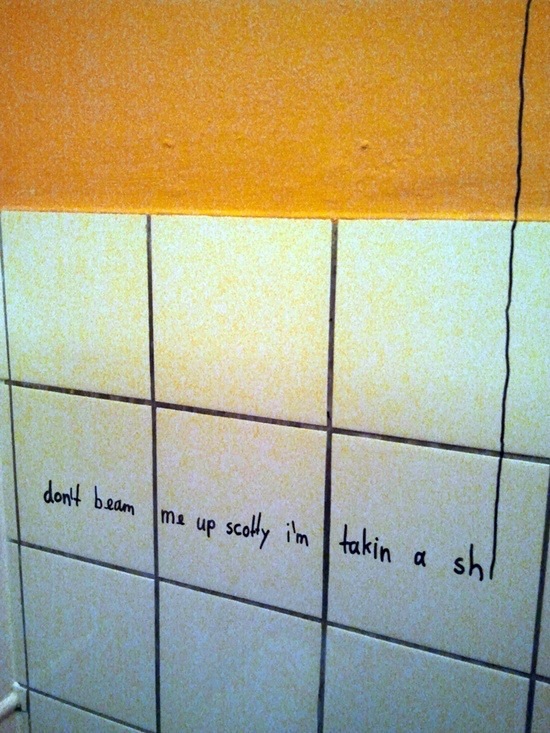 don't beam me up scotty i'm takin a shi